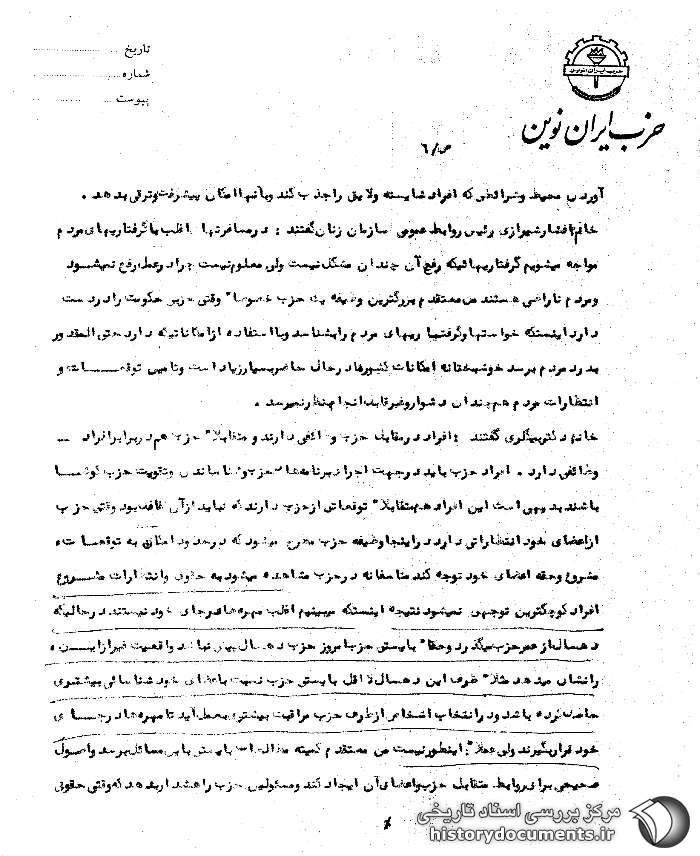 تاریخ
شماره
پیوست
حزب ایران نوین
حزب ایران نوین
ص/۶
آوردن محیط و شرائطی که افراد شایسته و لایق را جذب کند و بآنها امکان پیشرفت و ترقی بدهد .
خانم افشار شیرازی رئیس روابط عمومی سازمان زنان گفتند : در مسافرتها اغلب با گرفتاریهای مردم
مواجه میشویم گرفتاریهائیکه رفع آن چندان مشکل نیست ولی معلوم نیست چرا در عمل رفع نمیشود
و مردم ناراضی هستند من معتقدم بزرگترین وظیفه یک حزب خصوصا" وقتی حزبی حکومت را در دست
دارد اینستکه خواستها و گرفتاریهای مردم را بشناسد و با استفاده از امکاناتیکه دارد حتی المقدور
بدرد مردم برسد خوشبختانه امکانات کشور ما در حال حاضر بسیار زیاد است و تامین توقعات و
انتظارات مردم هم چندان دشوار و غیر قابل انجام بنظر نمیرسد .
خانم دکتر بیگلری گفتند : افراد در مقابل حزب وظائفی دارند و متقابلا" حزب هم در برابر افراد
وظائفی دارد . افراد حزب باید در جهت اجرا برنامه‌ها حزب و شناساندن و تقویت حزب کوشا
باشند بدیهی است این افراد هم متقابلا" توقعاتی از حزب دارند که نباید از آن غافل بود وقتی حزب
از اعضای خود انتظاراتی دارد در اینجا وظیفه حزب مطرح میشود که در حدود امکان به توقعات
مشروع و حقه اعضای خود توجه کند متاسفانه در حزب مشاهده میشود به حقوق و انتظارات مشروع
افراد کوچکترین توجهی نمیشود نتیجه اینستکه میبینیم اغلب مهره‌ها در جای خود نیستند در حالیکه
ده سال از عمر حزب میگذرد و حقا" بایستی حزب امروز حزب ده سال پیش نباشد واقعیت غیر از این
را نشان میدهد مثلا" ظرف این ده سال لااقل بایستی حزب نسبت باعضای خود شناسائی بیشتری
حاصل کرده باشد و در انتخاب اشخاص از طرف حزب مراقبت بیشتری بعمل آید تا مهره‌ها در جای
خود قرار بگیرند ولی عملا" اینطور نیست من معتقدم کمیته مطالعات بایستی باین مسائل برسد و اصول
صحیحی برای روابط متقابل حزب و اعضای آن ایجاد کند و مسئولین حزب را هشدار بدهد که وقتی حقوقی
مرکز بررسی اسناد تاریخی
historydocuments.ir